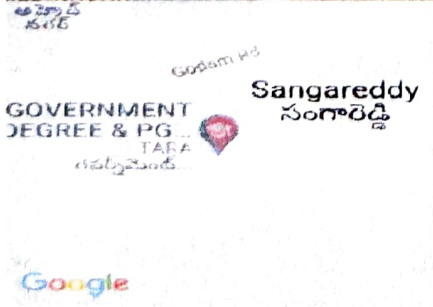 అహ్మద్
నగర్
Godam Rd
Sangareddy
సంగారెడ్డి
GOVERNMENT
DEGREE & PG...
TARA
గవర్నమెంట్...
Google